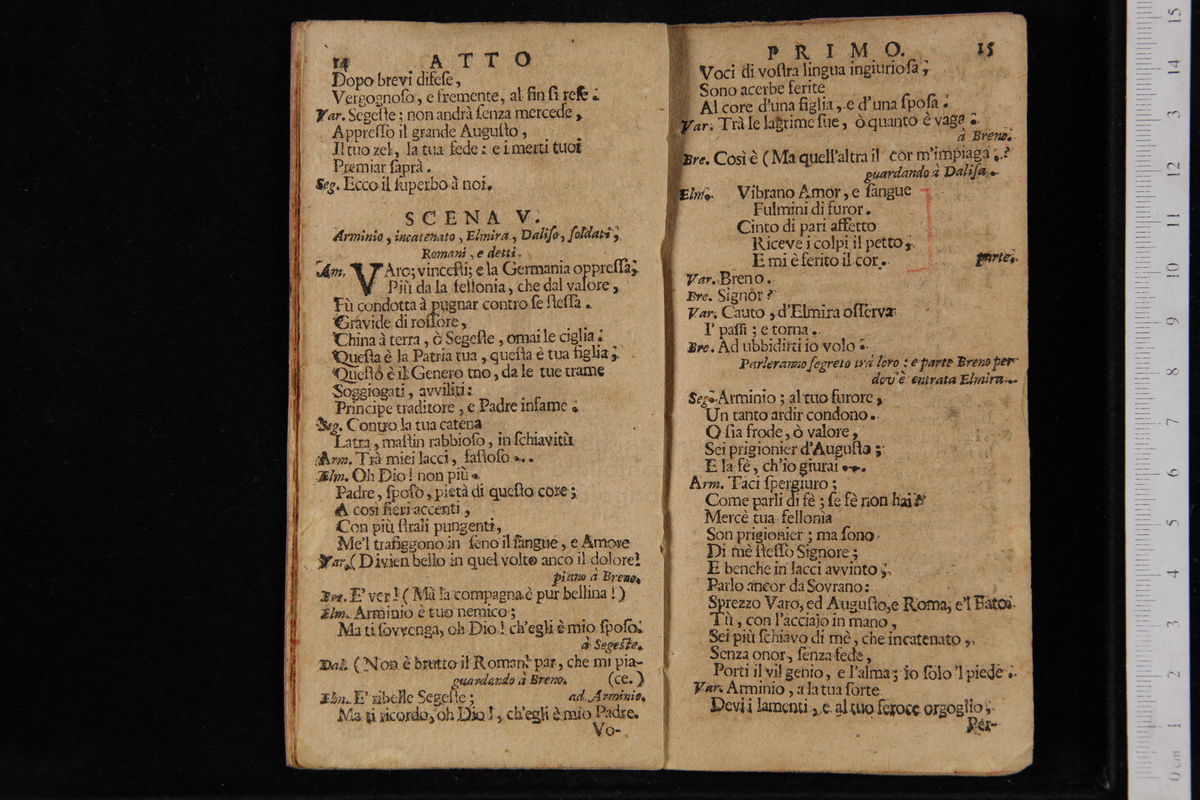 14 ATTO
Dopo brevi difese,
Vergognoso, e fremente, al fin si rese.
Var. Segeste; non andrà senza mercede,
Appresso il grande Augusto,
Il tuo zel, la tua fede: e i merti tuoi
Premiar saprà.
Seg. Ecco il superbo à noi.
SCENA V.
Arminio, incatenato, Elmira, Daliso, soldati,
Romani, e detti.
Am. VAro; vincesti; e la Germania oppressa,
Più da la fellonia, che dal valore,
Fù condotta à pugnar contro se stessa.
Gravide di rossore,
China à terra, ò Segeste, omai le ciglia:
Questa è la Patria tua, questa è tua figlia;
Questo è il Genero tno, da le tue trame
Soggiogati, avviliti:
Principe traditore, e Padre infame.
Seg. Contro la tua catena
Latra, mastin rabbioso, in schiavitù
Arm. Trà miei lacci, fastoso...
Elm. Oh Dio! non più.
Padre, sposo, pietà di questo core;
A così fieri accenti,
Con più strali pungenti,
Me'l trafiggono in seno il sangue, e Amore
Var. (Divien bello in quel volto anco il dolore!
piano à Breno.
Bre. E' ver! (Mà la compagna è pur bellina!)
Elm. Arminio è tuo nemico;
Ma ti sovvenga, oh Dio! ch'egli è mio sposo.
à Segeste.
Dal. (Non è brutto il Roman: par, che mi pia-
guardando à Breno. (ce.)
Elm. E' ribelle Segeste; ad Arminio.
Ma ti ricordo, oh Dio!, ch'egli è mio Padre.
Vo-
PRIMO. 15
Voci di vostra lingua ingiuriosa;
Sono acerbe ferite
Al core d'una figlia, e d'una sposa.
Var. Trà le lagrime sue, ò quanto è vaga.
à Breno.
Bre. Così è (Ma quell'altra il cor m'impiaga.?
guardando à Dalisa.
Elm. Vibrano Amor, e sangue
Fulmini di furor.
Cinto di pari affetto
Riceve i colpi il petto;
E mi è ferito il cor. parte.
Var. Breno.
Bre. Signor?
Var. Cauto, d'Elmira osserva
I' passi; e torna.
Bre. Ad ubbidirti io volo.
Parleranno segreto trà loro: e parte Breno per
dov'è entrata Elmira.
Seg. Arminio; al tuo furore,
Un tanto ardir condono.
O sia frode, ò valore,
Sei prigionier d'Augusto;
E la fè, ch'io giurai...
Arm. Taci spergiuro;
Come parli di fè; se fè non hai?
Mercè tua fellonia
Son prigionier; ma sono
Di mè stesso Signore;
E benche in lacci avvinto;
Parlo ancor da Sovrano:
Sprezzo Varo, ed Augusto, e Roma, e'l Fato.
Tù, con l'acciajo in mano,
Sei più schiavo di mè, che incatenato,
Senza onor, senza fede,
Porti il vil genio, e l'alma; io solo 'l piede.
Var. Arminio, a la tua sorte
Devi i lamenti, e al tuo feroce orgoglio;
Per-
0 cm 1 2 3 4 5 6 7 8 9 10 11 12 13 14 15